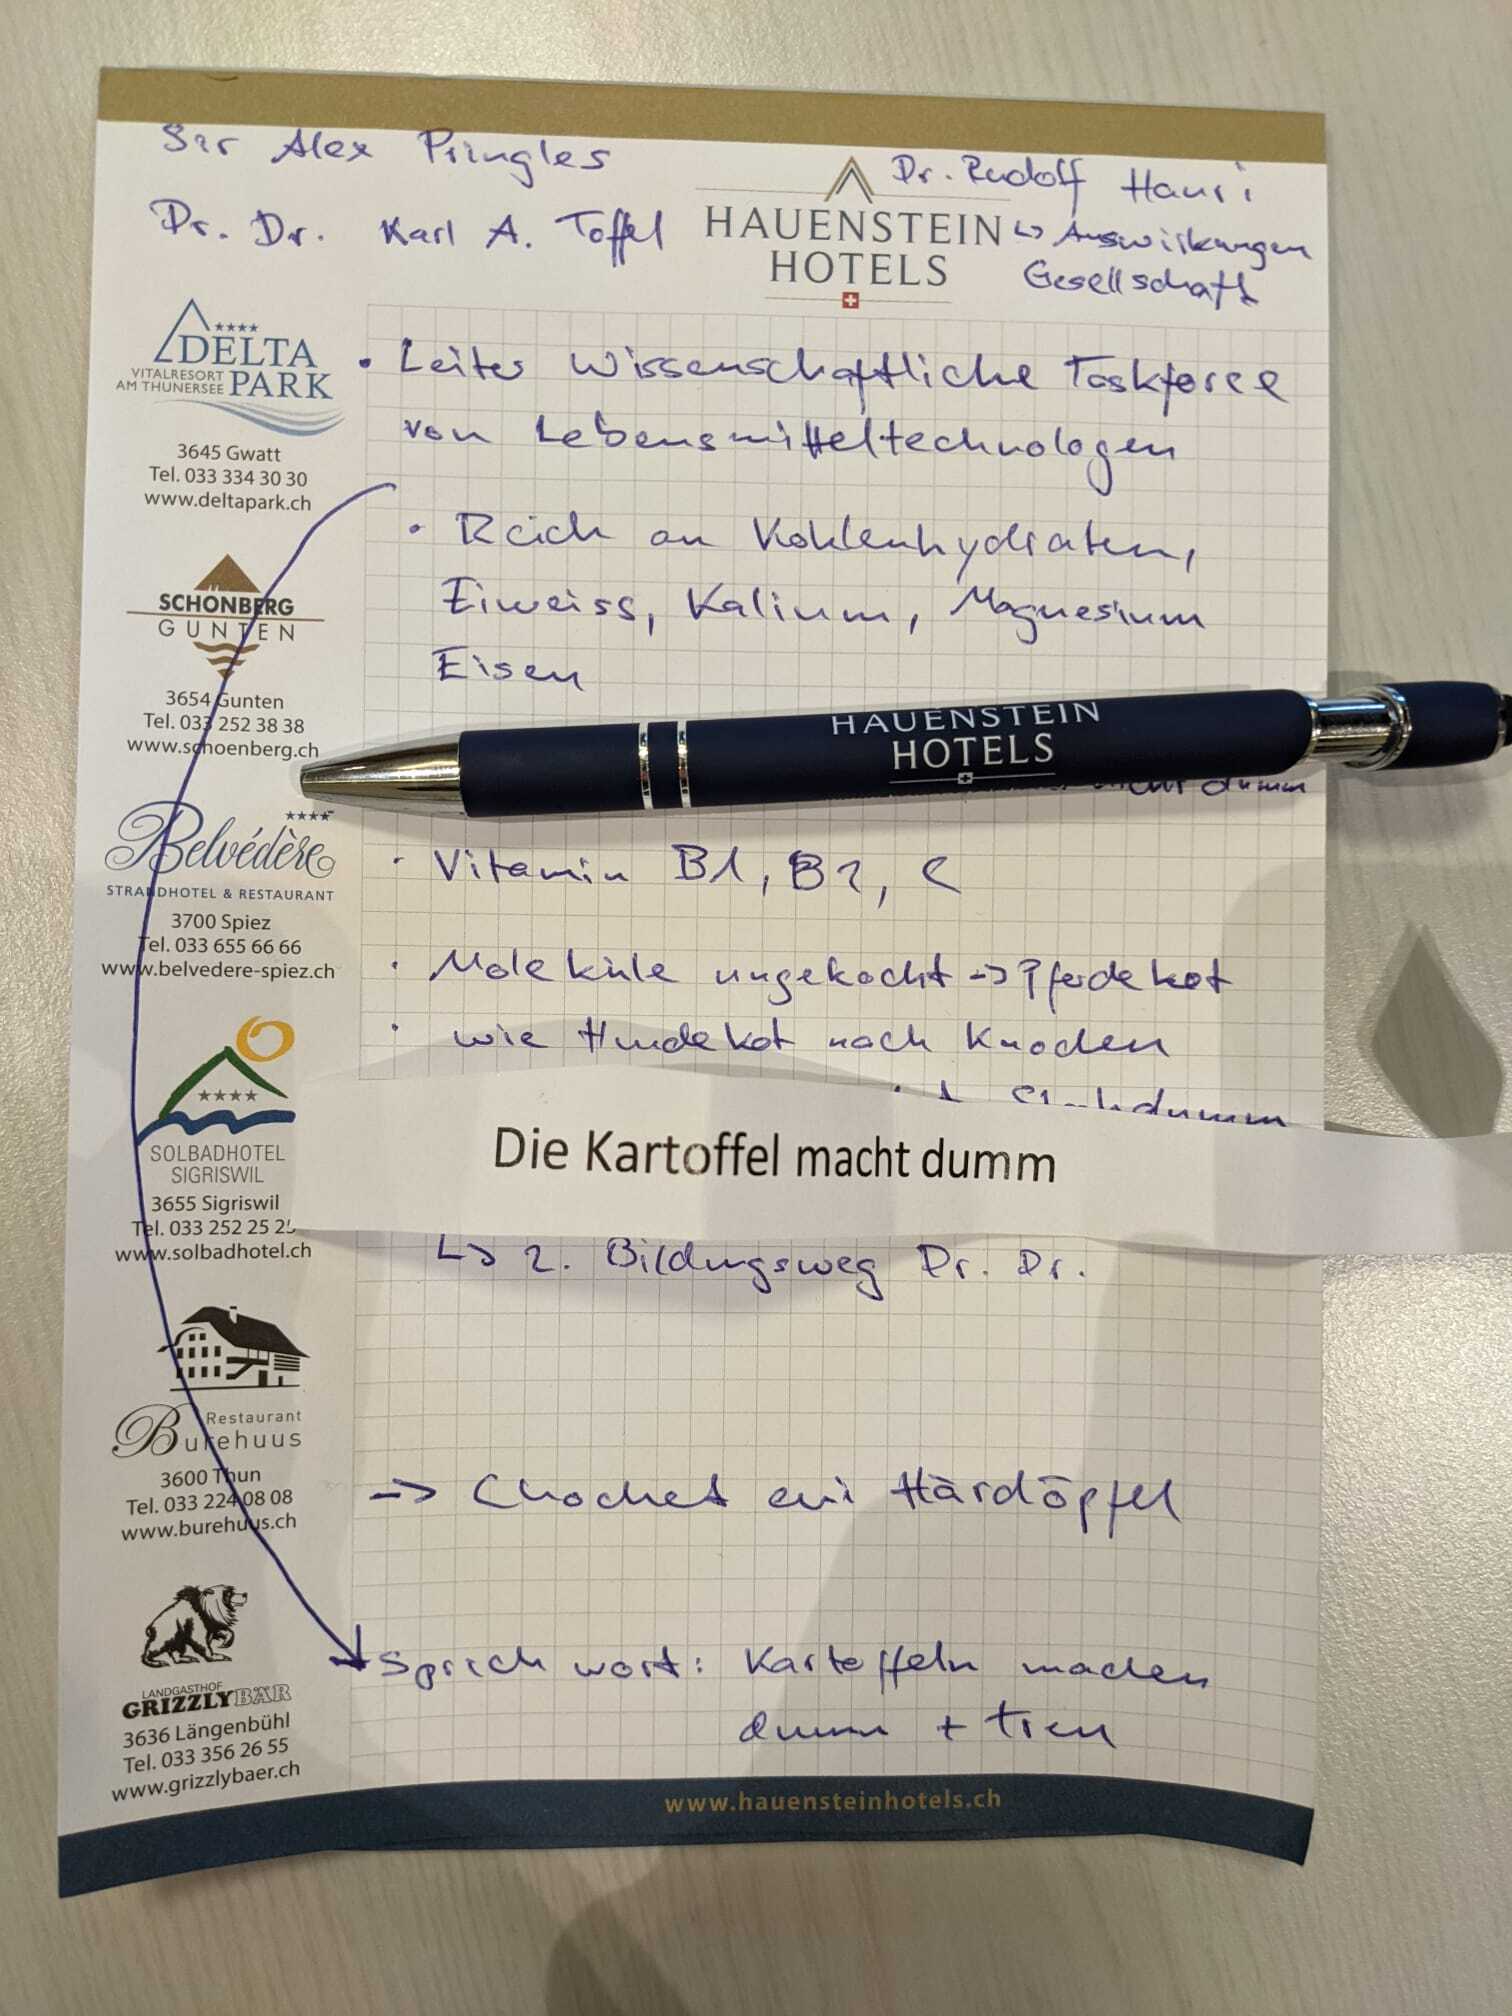 Sir Alex Pringles
Dr. Rudolf Hauri
Dr. Dr. Karl A. Toffel
↳ Auswirkungen
Gesellschaft
HAUENSTEIN
HOTELS
DELTA
VITALRESORT
AM THUNERSEE PARK
3645 Gwatt
Tel. 033 334 30 30
www.deltapark.ch
SCHÖNBERG
GUNTEN
3654 Gunten
Tel. 033 252 38 38
www.schoenberg.ch
Belvédère
STRANDHOTEL & RESTAURANT
3700 Spiez
Tel. 033 655 66 66
www.belvedere-spiez.ch
SOLBADHOTEL
SIGRISWIL
3655 Sigriswil
Tel. 033 252 25 2
www.solbadhotel.ch
Restaurant
Burehuus
3600 Thun
Tel. 033 224 08 08
www.burehuus.ch
LANDGASTHOF
GRIZZLYBÄR
3636 Längenbühl
Tel. 033 356 26 55
www.grizzlybaer.ch
• Leiter Wissenschaftliche Taskforce
von Lebensmitteltechnologen
• Reich an Kohlenhydraten,
Eiweiss, Kalium, Magnesium
Eisen
HAUENSTEIN
HOTELS
dumm
• Vitamin B1, B2, C
• Moleküle ungekocht -> Pferdekot
• wie Hundekot nach Knochen
Strohdumm
Die Kartoffel macht dumm
↳ 2. Bildungsweg Dr. Dr.
-> Chochet eui Härdöpfel
Sprichwort: Kartoffeln machen
dumm + treu
www.hauensteinhotels.ch